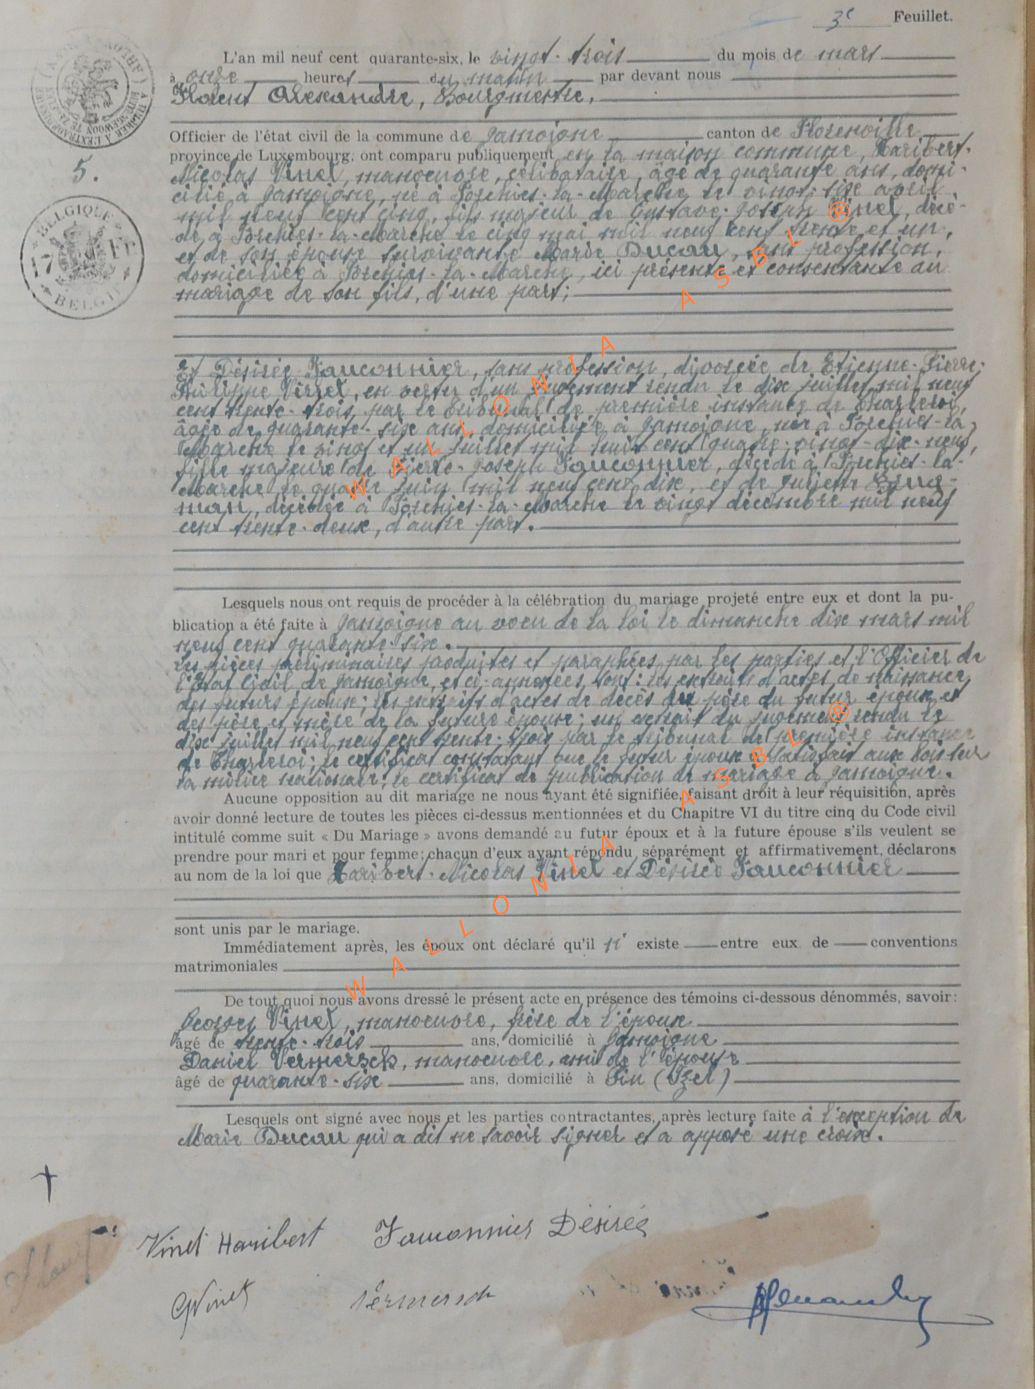 3e Feuillet.
L'an mil neuf cent quarante-six, le vingt-trois du mois de mars
à onze heures du matin par devant nous
Florent Alexandre, Bourgmestre,
Officier de l'état civil de la commune de Jamoigne canton de Florenville
province de Luxembourg, ont comparu publiquement en la maison commune, Haribert-
Nicolas Vinel, manoeuvre, célibataire, âgé de quarante ans, domi-
cilié à Jamoigne, né à Forchies-la-Marche le vingt-six avril
mil neuf cent cinq, fils majeur de Gustave-Joseph Vinel, décé-
dé à Forchies-la-Marche le cinq mai mil neuf cent trente et un,
et de son épouse survivante Marie Ducau, sans profession,
domiciliée à Forchies-la-Marche, ici présente et consentante au
mariage de son fils, d'une part;
5.
BELGIQUE
BELGIË
Et Désirée Fauconnier, sans profession, divorcée de Etienne-Pierre-
Philippe Virset, en vertu d'un jugement rendu le dix juillet mil neuf
cent trente-trois par le tribunal de première instance de Charleroi,
âgée de quarante-six ans, domiciliée à Jamoigne, née à Forchies-la-
Marche le vingt et un juillet mil huit cent quatre-vingt-dix-neuf,
fille majeure de Pierre-Joseph Fauconnier, décédé à Forchies-la-
Marche le quatre juin mil neuf cent dix, et de Juliette
décédée à Forchies-la-Marche le vingt décembre mil neuf
cent trente-deux, d'autre part.
Lesquels nous ont requis de procéder à la célébration du mariage projeté entre eux et dont la pu-
blication a été faite à Jamoigne au voeu de la loi le dimanche dix mars mil
neuf cent quarante-six.
Les pièces préliminaires produites et paraphées par les parties et l'Officier de
l'Etat Civil de Jamoigne, et ci-annexées, sont: les extraits d'actes de naissance
des futurs époux; les extraits d'actes de décès du père du futur époux et
des père et mère de la future épouse; un extrait du jugement rendu le
dix juillet mil neuf cent trente-trois par le tribunal de première instance
de Charleroi; le certificat constatant que le futur époux a satisfait aux lois sur
la milice nationale; le certificat de publication de mariage à Jamoigne.
Aucune opposition au dit mariage ne nous ayant été signifiée, faisant droit à leur réquisition, après
avoir donné lecture de toutes les pièces ci-dessus mentionnées et du Chapitre VI du titre cinq du Code civil
intitulé comme suit « Du Mariage » avons demandé au futur époux et à la future épouse s'ils veulent se
prendre pour mari et pour femme; chacun d'eux ayant répondu séparément et affirmativement, déclarons
au nom de la loi que Haribert-Nicolas Vinel et Désirée Fauconnier
sont unis par le mariage.
Immédiatement après, les époux ont déclaré qu'il n'existe entre eux de conventions
matrimoniales
De tout quoi nous avons dressé le présent acte en présence des témoins ci-dessous dénommés, savoir:
Georges Vinel, manoeuvre, frère de l'époux
âgé de trente-trois ans, domicilié à Jamoigne
Daniel Vermersch, manoeuvre, ami de l'épouse
âgé de quarante-six ans, domicilié à Pin (Izel)
Lesquels ont signé avec nous et les parties contractantes, après lecture faite à l'exception de
Marie Ducau qui a dit ne savoir signer et a apposé une croix.
Vinel Haribert Fauconnier Désirée
GVinel Vermersch
WALLONIA ASBL ®
WALLONIA ASBL ®